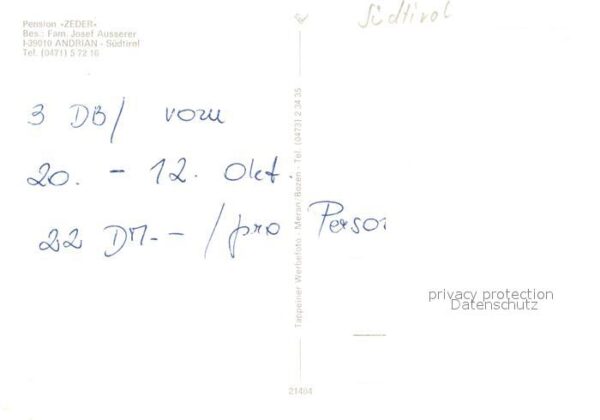 Pension »ZEDER«
Bes.: Fam. Josef Ausserer
I-39010 ANDRIAN - Südtirol
Tel. (0471) 5 72 16
Südtirol
3 DB/ vom
20. - 12. Okt.
22 DM.-- /pro Person
Tappeiner Werbefoto - Meran/Bozen - Tel. (0473) 2 34 35
privacy protection
Datenschutz
21404